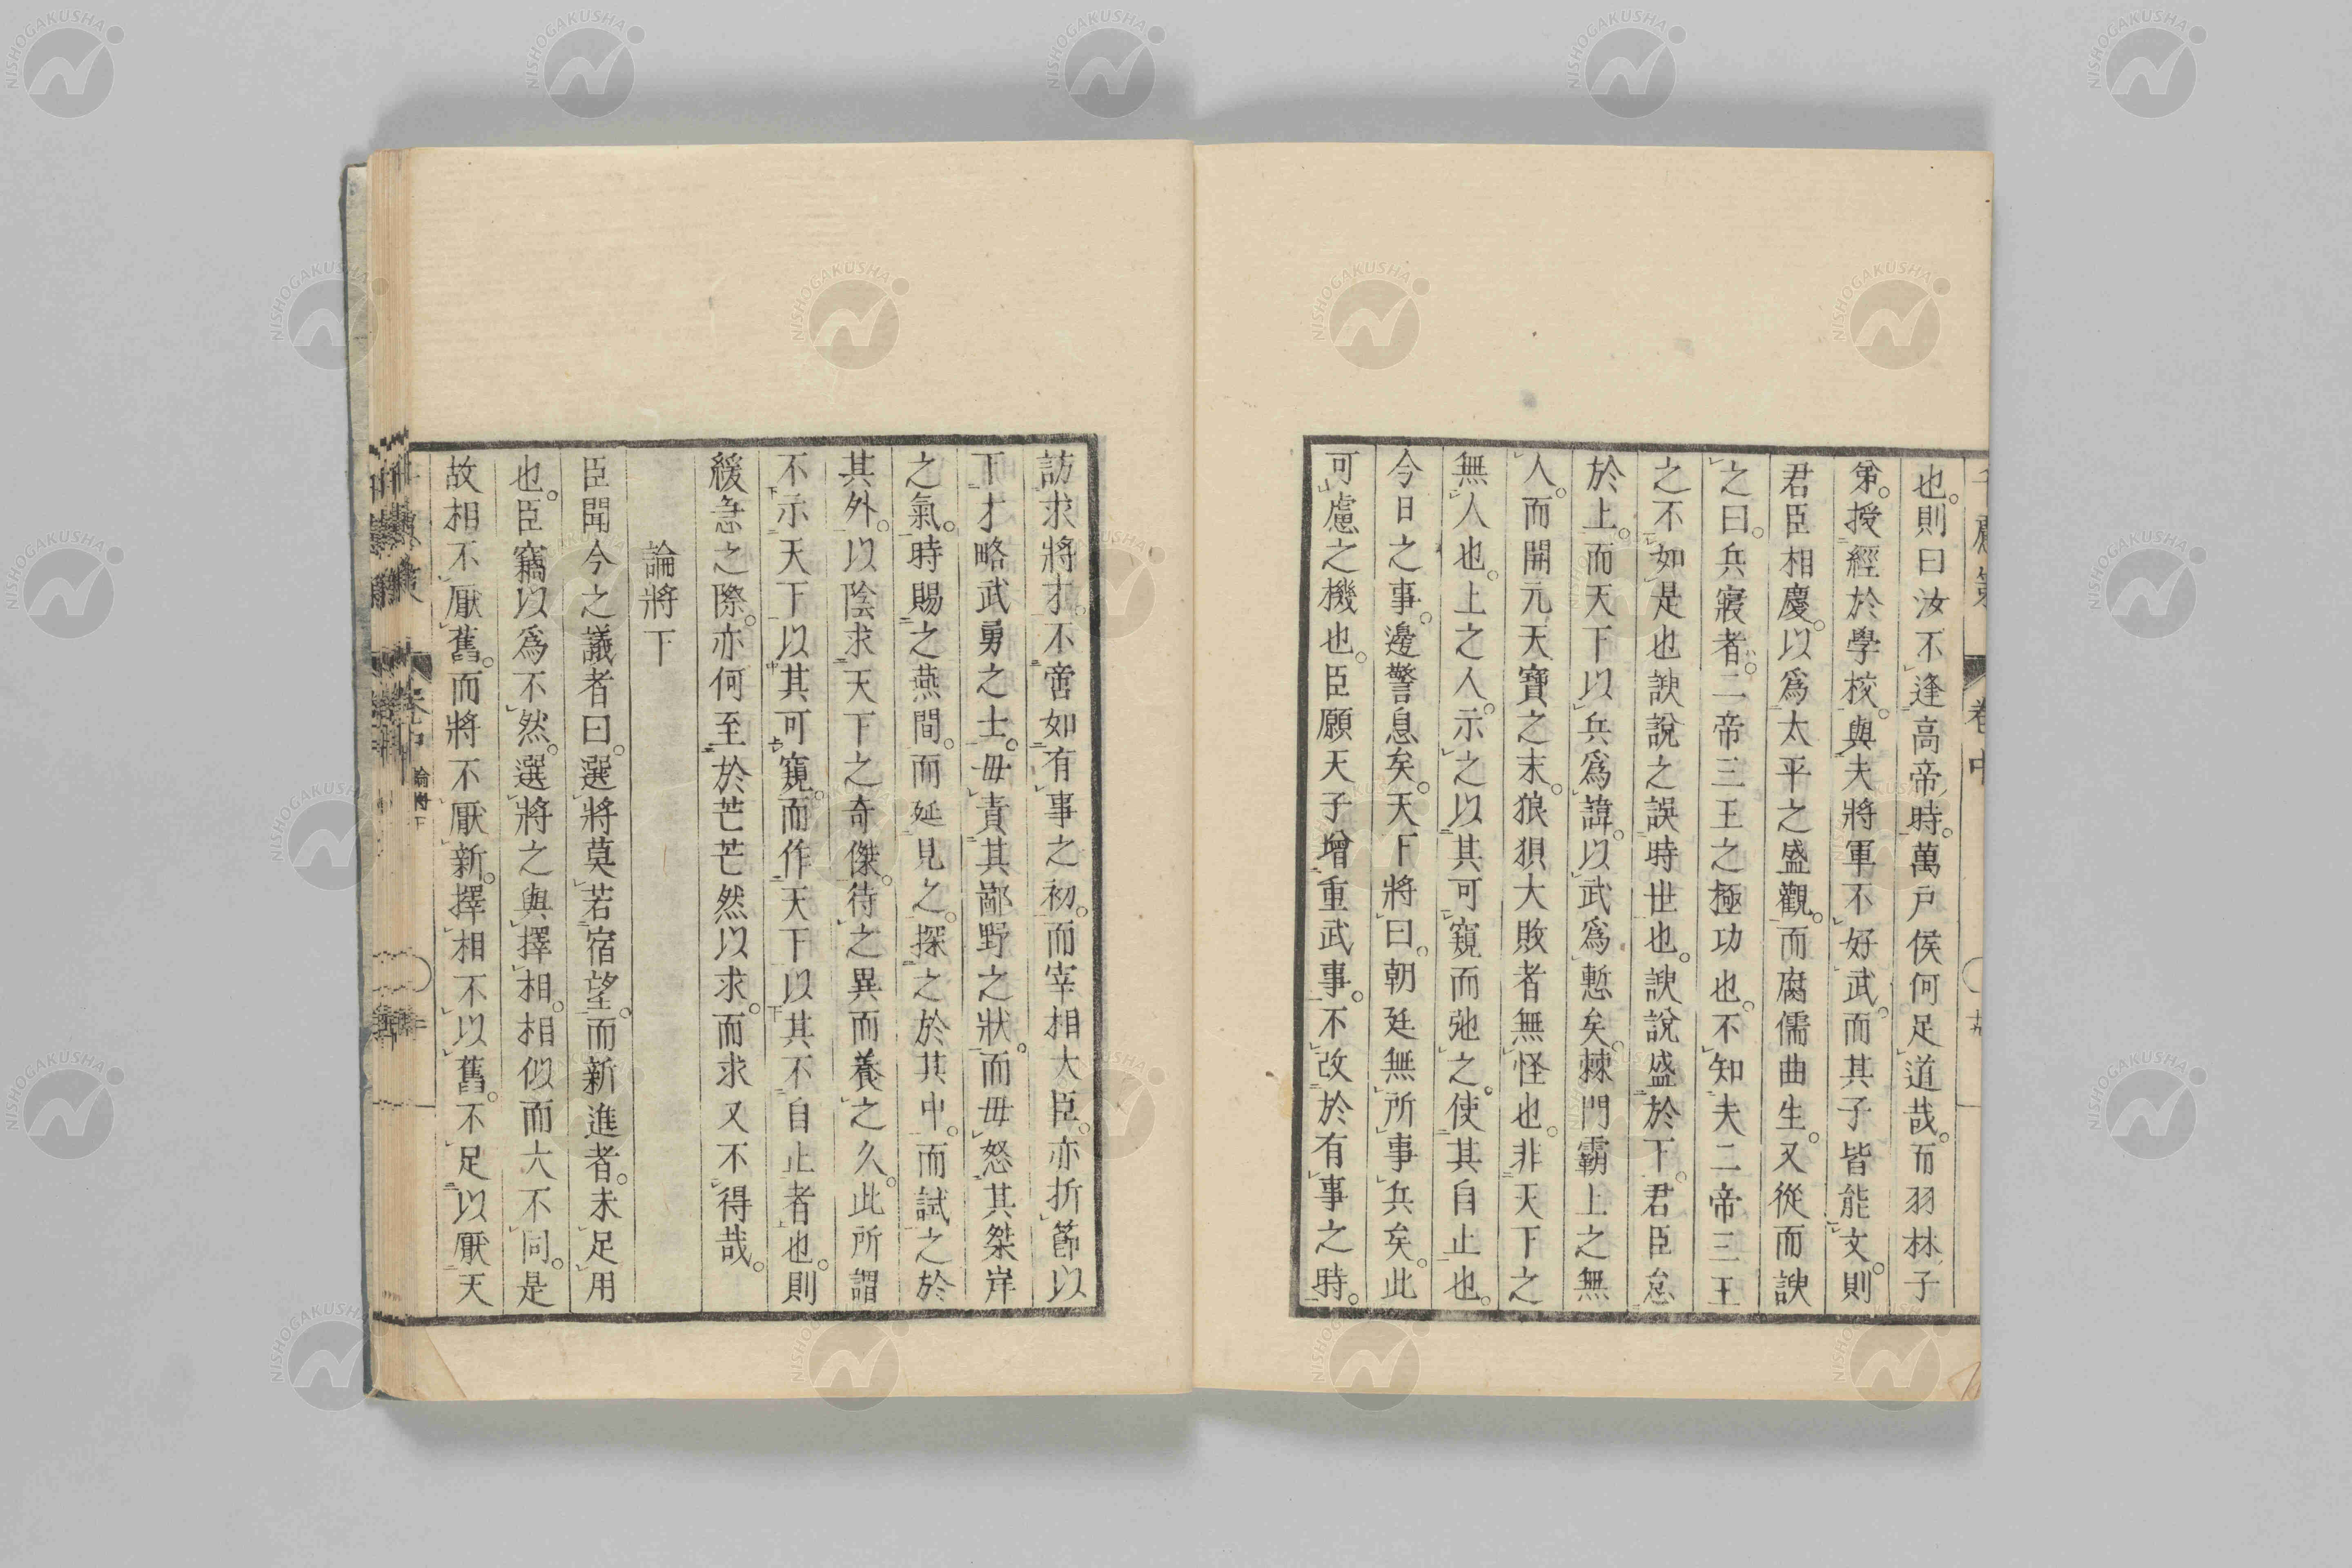 也。則曰汝不逢高帝時。萬戶侯何足道哉。而羽林子
第。授經於學校。與夫將軍不好武。而其子皆能文。則
君臣相慶。以爲太平之盛觀。而腐儒曲生。又從而諛
之曰。兵寢者。二帝三王之極功也。不知夫二帝三王
之不如是也諛說之誤時世也。諛說盛於下。君臣怠
於上。而天下以兵爲諱。以武爲慙矣。棘門霸上之無
人。而開元天寶之末。狼狽大敗者無怪也。非天下之
無人也。上之人。示之以其可窺而弛之。使其自止也。
今日之事。邊警息矣。天下將曰。朝廷無所事兵矣。此
可慮之機也。臣願天子增重武事。不改於有事之時。
訪求將才。不啻如有事之初。而宰相大臣。亦折節以
下才略武勇之士。毋責其鄙野之狀。而毋怒其桀岸
之氣。時賜之燕間。而延見之。探之於其中。而試之於
其外。以陰求天下之奇傑。待之異而養之久。此所謂
不示天下以其可窺。而作天下以其不自止者也。則
緩急之際。亦何至於芒芒然以求。而求又不得哉。
論將下
臣聞今之議者曰。選將莫若宿望。而新進者。未足用
也。臣竊以爲不然。選將之與擇相。相似而大不同。是
故相不厭舊。而將不厭新。擇相不以舊。不足以厭天
卷中
論將下
NISHOGAKUSHA